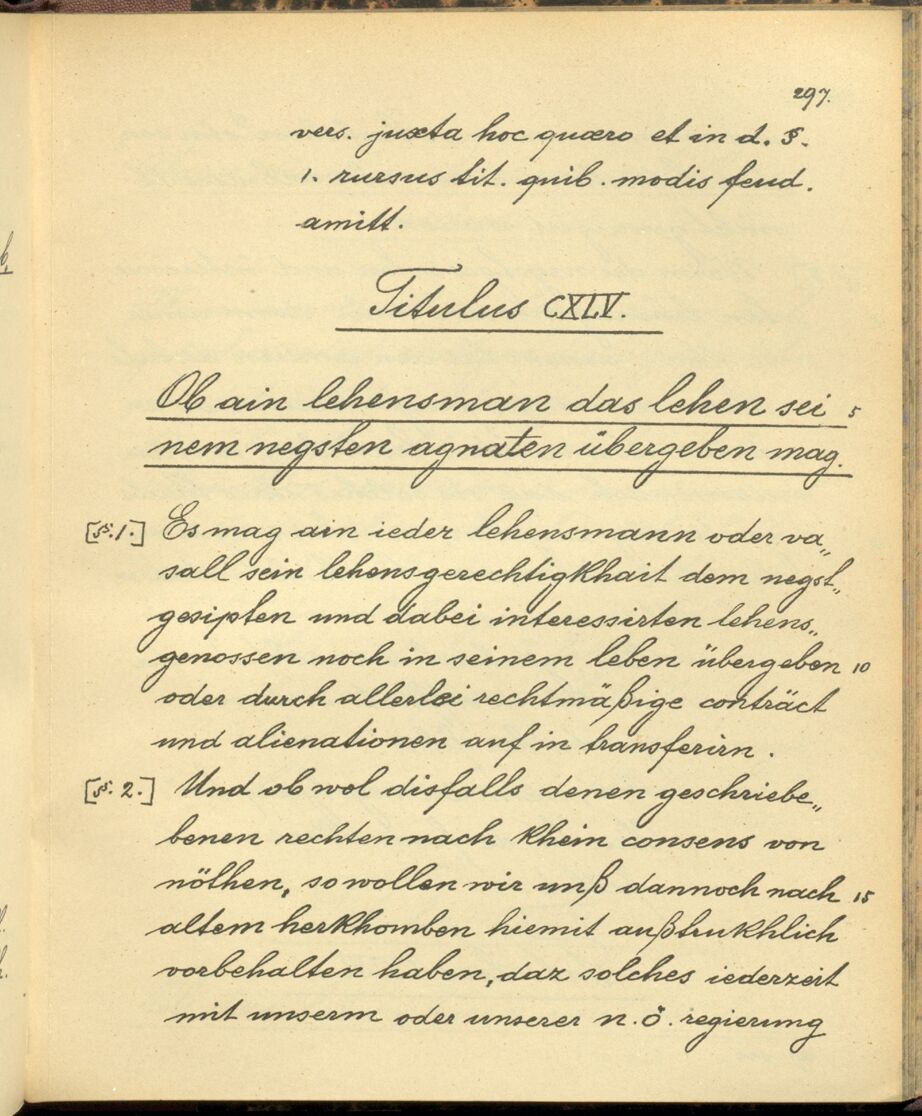 297.
vers. juxta hoc quæro et in d. §.
1. rursus tit. quib. modis feud.
amitt.
Titulus CXLV.
Ob ain lehensman das lehen sei 5
nem negsten agnaten übergeben mag.
[§. 1.] Es mag ain ieder lehensmann oder va„
sall sein lehensgerechtigkhait dem negst„
gesipten und dabei interessirten lehens„
genossen noch in seinem leben übergeben 10
oder durch allerlei rechtmäßige conträct
und alienationen auf in transferirn.
[§. 2.] Und ob wol disfalls denen geschriebe„
benen rechten nach khein consens von
nöthen, so wollen wir unß dannoch nach 15
altem herkhomben hiemit außtrukhlich
vorbehalten haben, daz solches iederzeit
mit unserm oder unserer n. ö. regierung